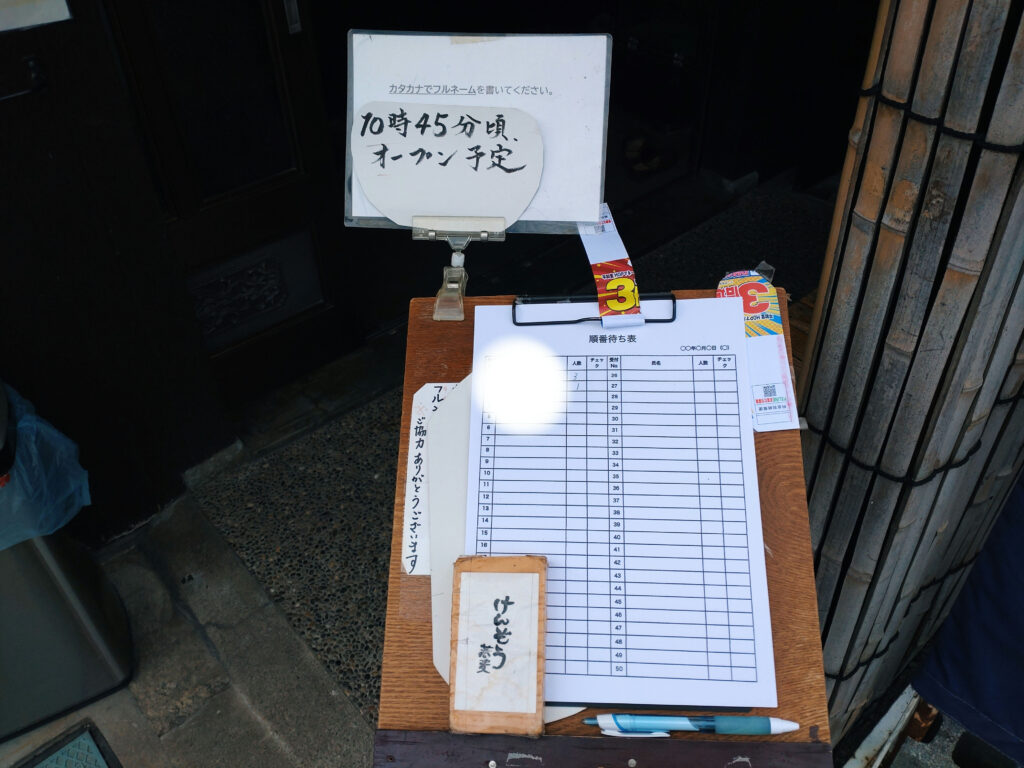 カタカナでフルネームを書いてください。
10時45分頃、
オープン予定
3
順番待ち表
〇〇年〇月〇日（〇）
人数 チェック 受付No 氏名 人数 チェック
3 26
1 27
28
29
5 30
6 31
7 32
8 33
9 34
10 35
11 36
12 37
13 38
14 39
15 40
16 41
42
43
44
45
46
47
48
49
50
ご協力ありがとうございます
けんぞう
蕎麦
3